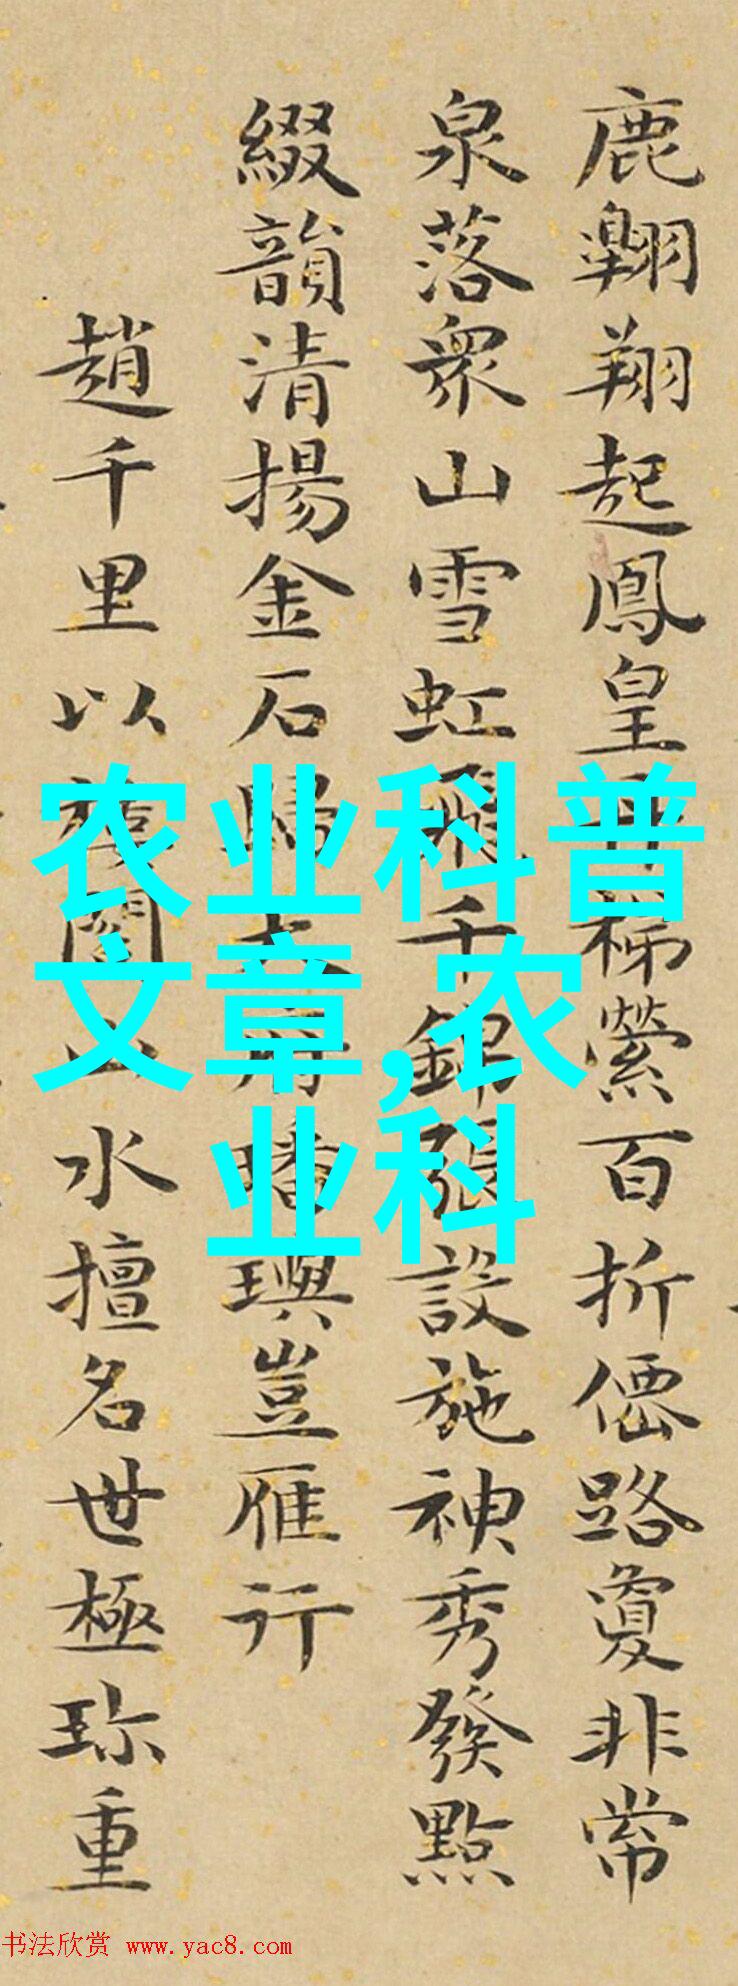 鹿翱翔起鳳皇丹梯縈百折僊路敻非常
泉落衆山雪虹飛千錦張設施神秀發點
綴韻清揚金石歸府璠璵豈雁行
趙千里以閣山水擅名世極珎重
农业科普
文章,农
业科
书法欣赏 www.yac8.com